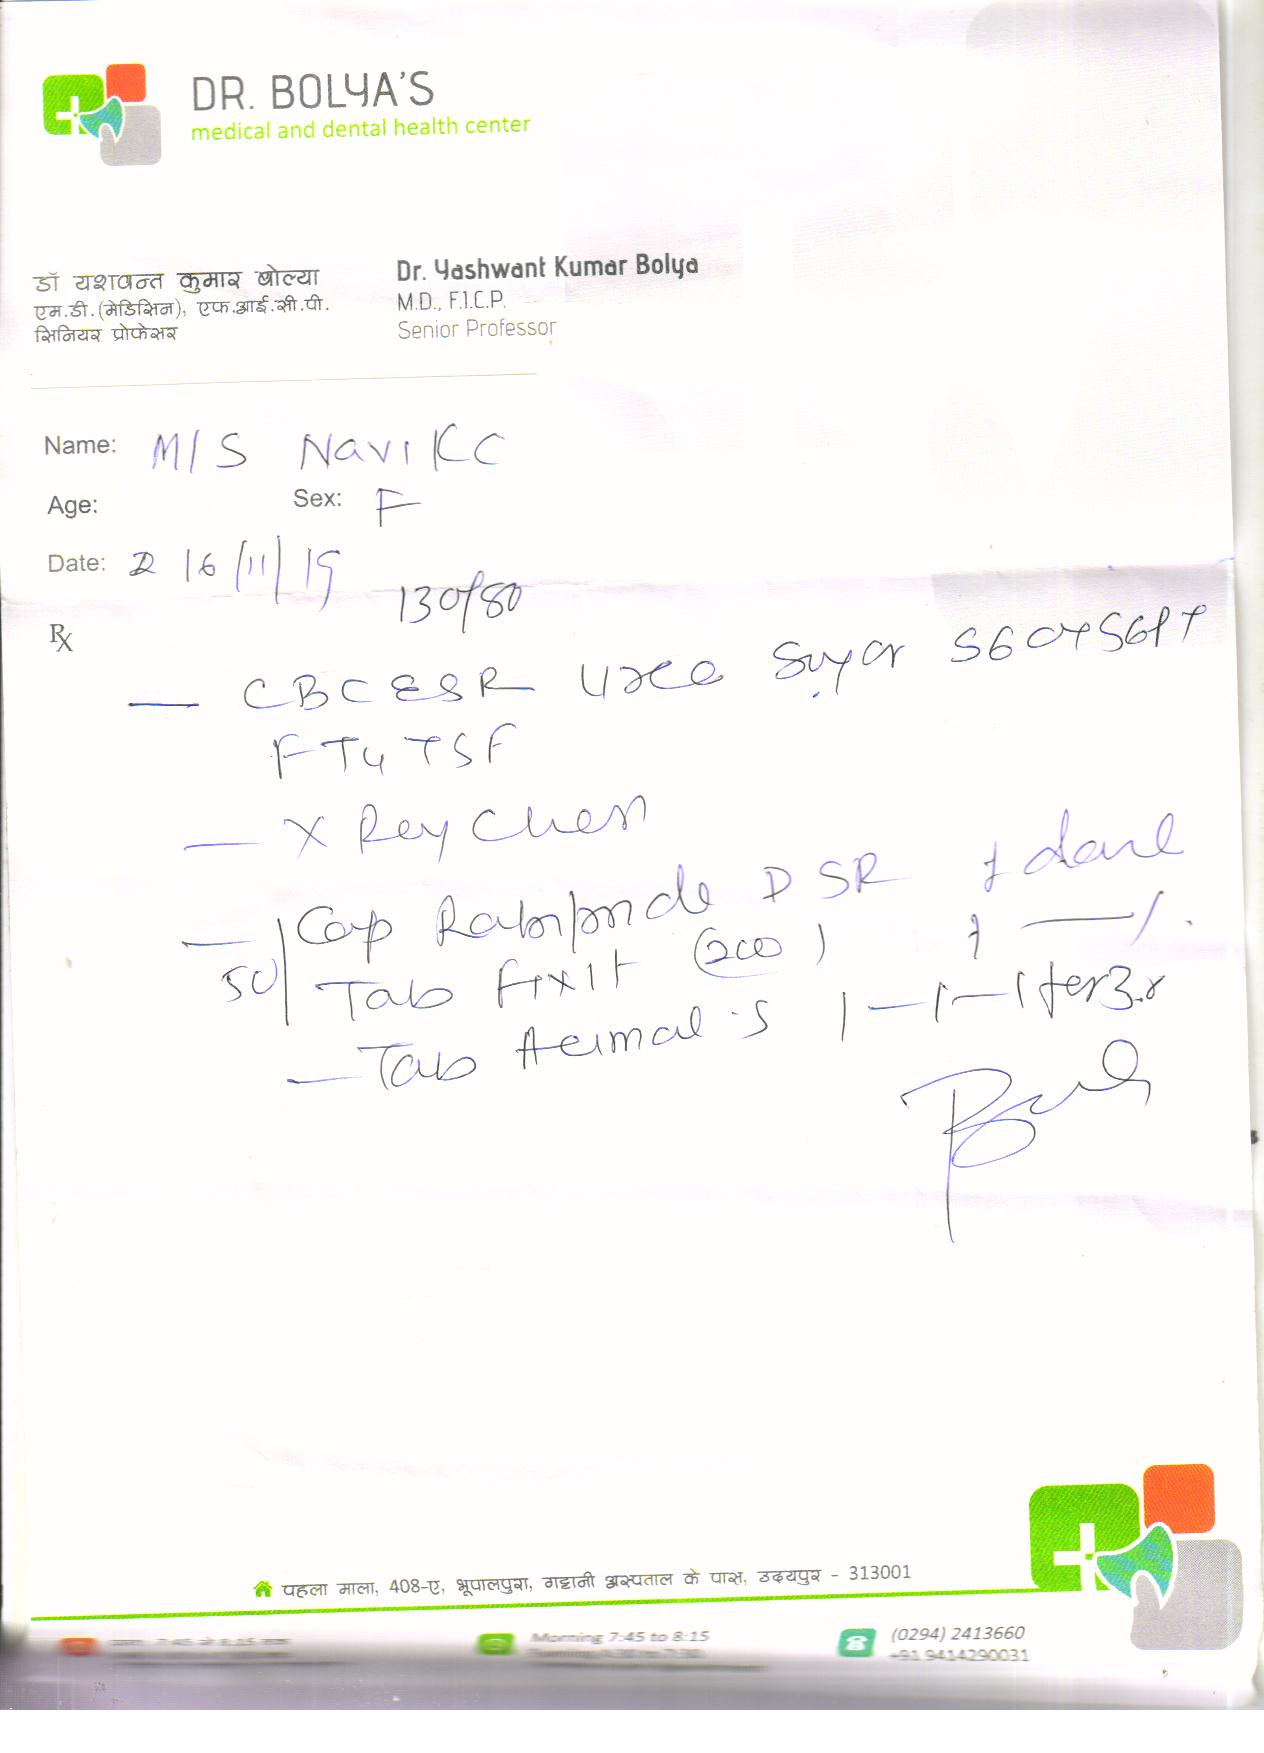 DR. BOLYA'S
medical and dental health center
डॉ यशवन्त कुमार बोल्या
एम.डी.(मेडिसिन), एफ.आई.सी.पी.
सिनियर प्रोफेसर
Dr. Yashwant Kumar Bolya
M.D., F.I.C.P.
Senior Professor
Name: M/S Navi KC
Age:
Sex: F
Date: 16/11/19
130/80
Rx
— CBC ESR Urea Sugar SGOT SGPT
FT4 TSF
— X Ray Chest
— Cap DSR 1
50 Tab Fixit (200) 1
— Tab 1-1-1
पहला माला, 408-ए, भूपालपुरा, गट्टानी अस्पताल के पास, उदयपुर - 313001
Morning 7:45 to 8:15
(0294) 2413660
+91 9414290031